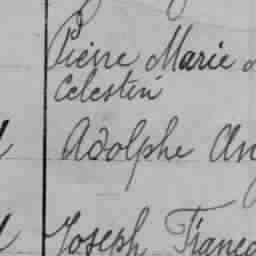 Pierre Marie
Celestin
Adolphe
Joseph